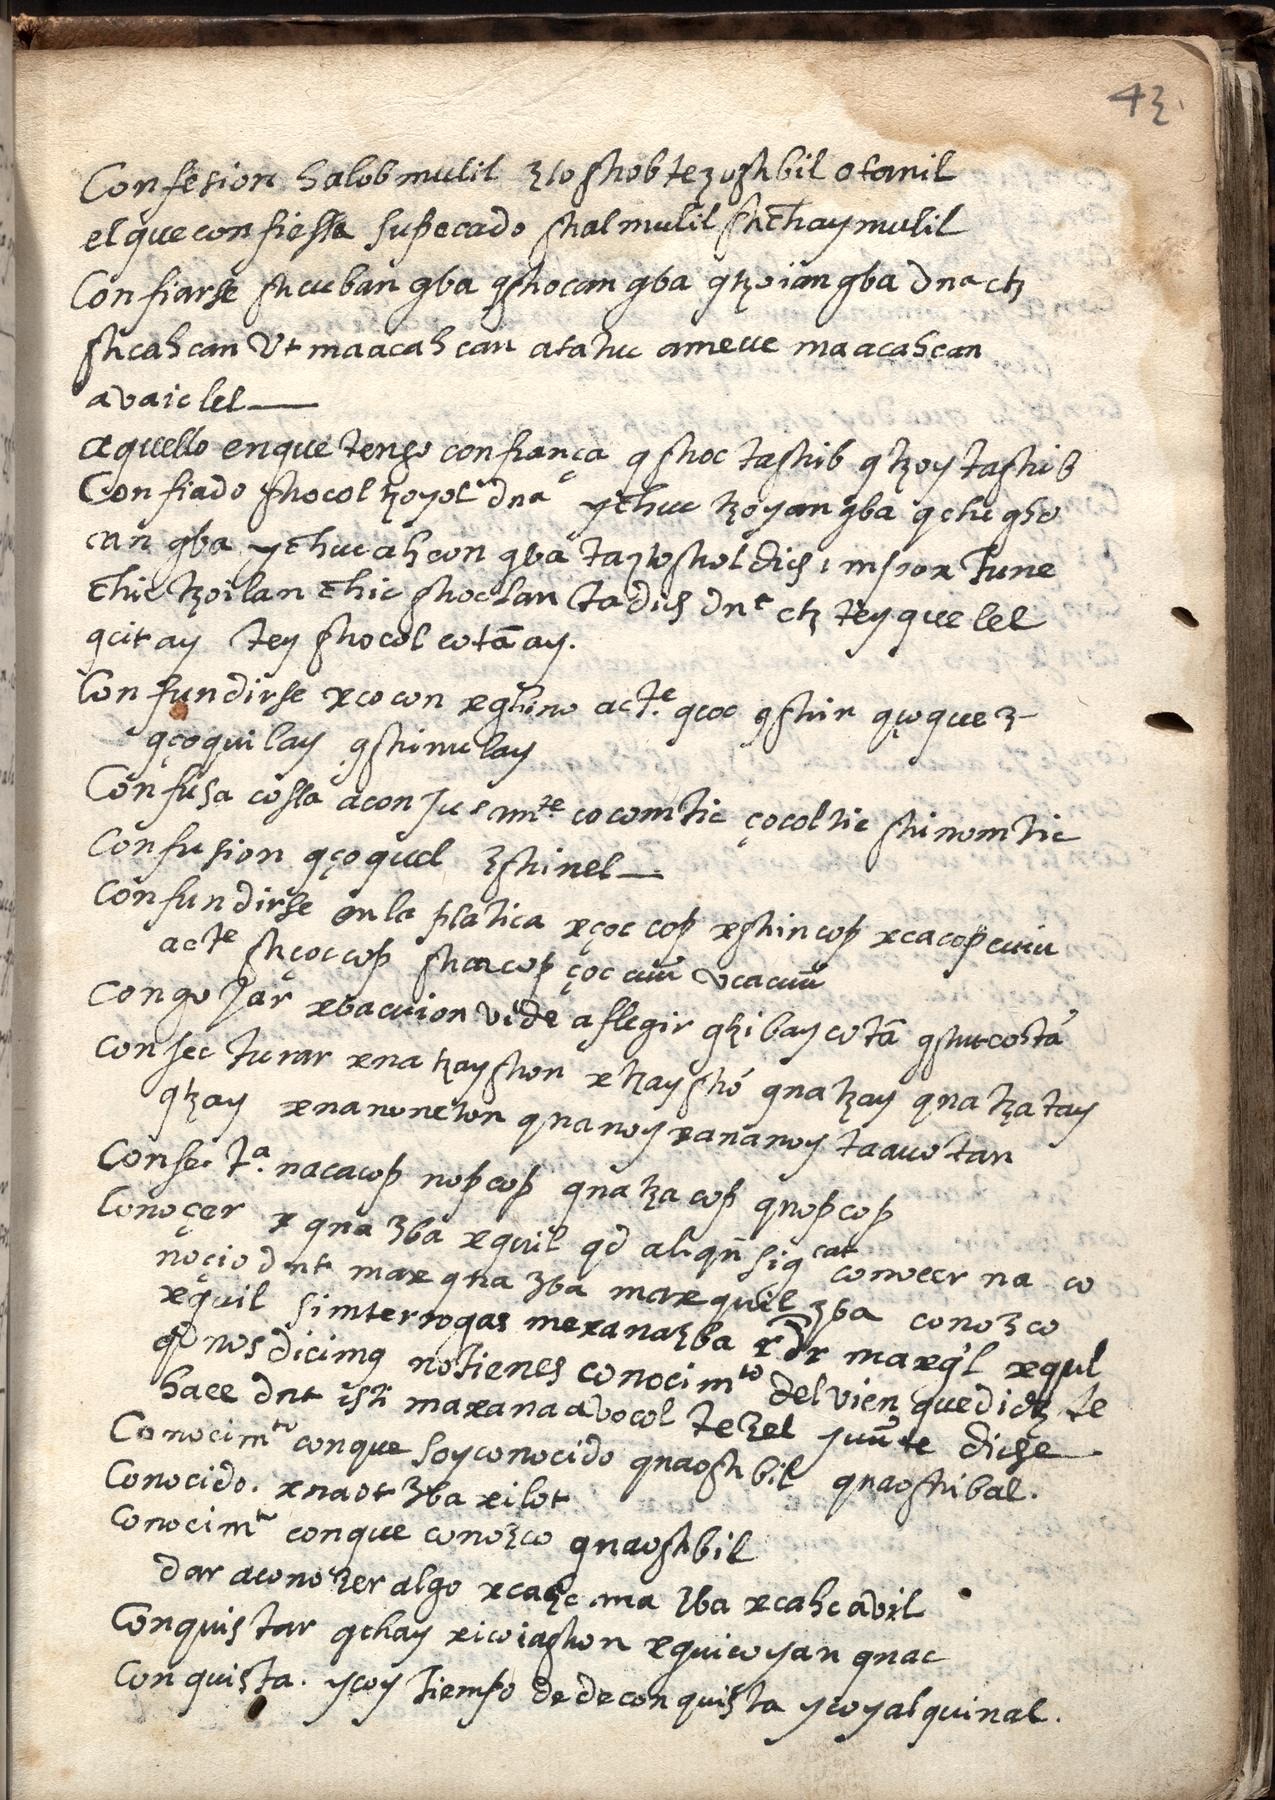 43
Confesion halob mulil zloshob tezoshbil otanil
el que confiessa su pecado shal mulil shchay mulil
Confiarse shcuban gba qshocan gba qtzoian gba dna ctz
shcahcan Vt ma acahcan atahu ameue ma acahcan
avaiclel
aquello enque tengo confiança qshoc tashib qtzoytashib
Confiado shocol tzoyol dna ychuc tzoyan gba qchu gsho
can gba ychucahcon gba ta dios
chic tzoilan chic shoclan ta dios dne ctz tey quelel
qcit ay tey shocol cotā ay.
Confundirse xcocon xghino acte. qcoc qshin qçoque z
qçoquilay qshinulay
Confusa cossa cocomtic çocoltic shinomtic
Confusion qçoquel zshinel
Confundirse en la platica xçoc cop xshin cop xcacop cuiu
acte shçoccop çoc cuū vcacuū
Congojar xbacuion vide aflegir qtzibay cotā
Consecturar xna tzayshon xtzayshō qna tzay qna tzatay
qtzay xnanoneton qnanoy xananoy taauotan
Conse.ta. nacacop nopcop qna tza cop qnopcop
Conoçer x qna zba xquil qd aliqn sigcat conocer na co
noçio dnt max qna zba maxquil zba conozco
xquil si interrogas mexanazba rdr maxq'l xqul
qo nos dicimq no tienes conocimto del vien que dios te
haee dnt isti maxana avocol tezel yuūte diose
Conocimto conque soy conocido qnaoshbil qnaoshibal.
Conocido. xnaot zba xilot
Conocimto conque conozco qnaoshbil
dar aconozer algo xcahc ma zba xcahc avil
Conquistar qchay xicoiashon xquicoyan qnac
Conquista. ycoy tiempo de deconquista ycoyal quinal.